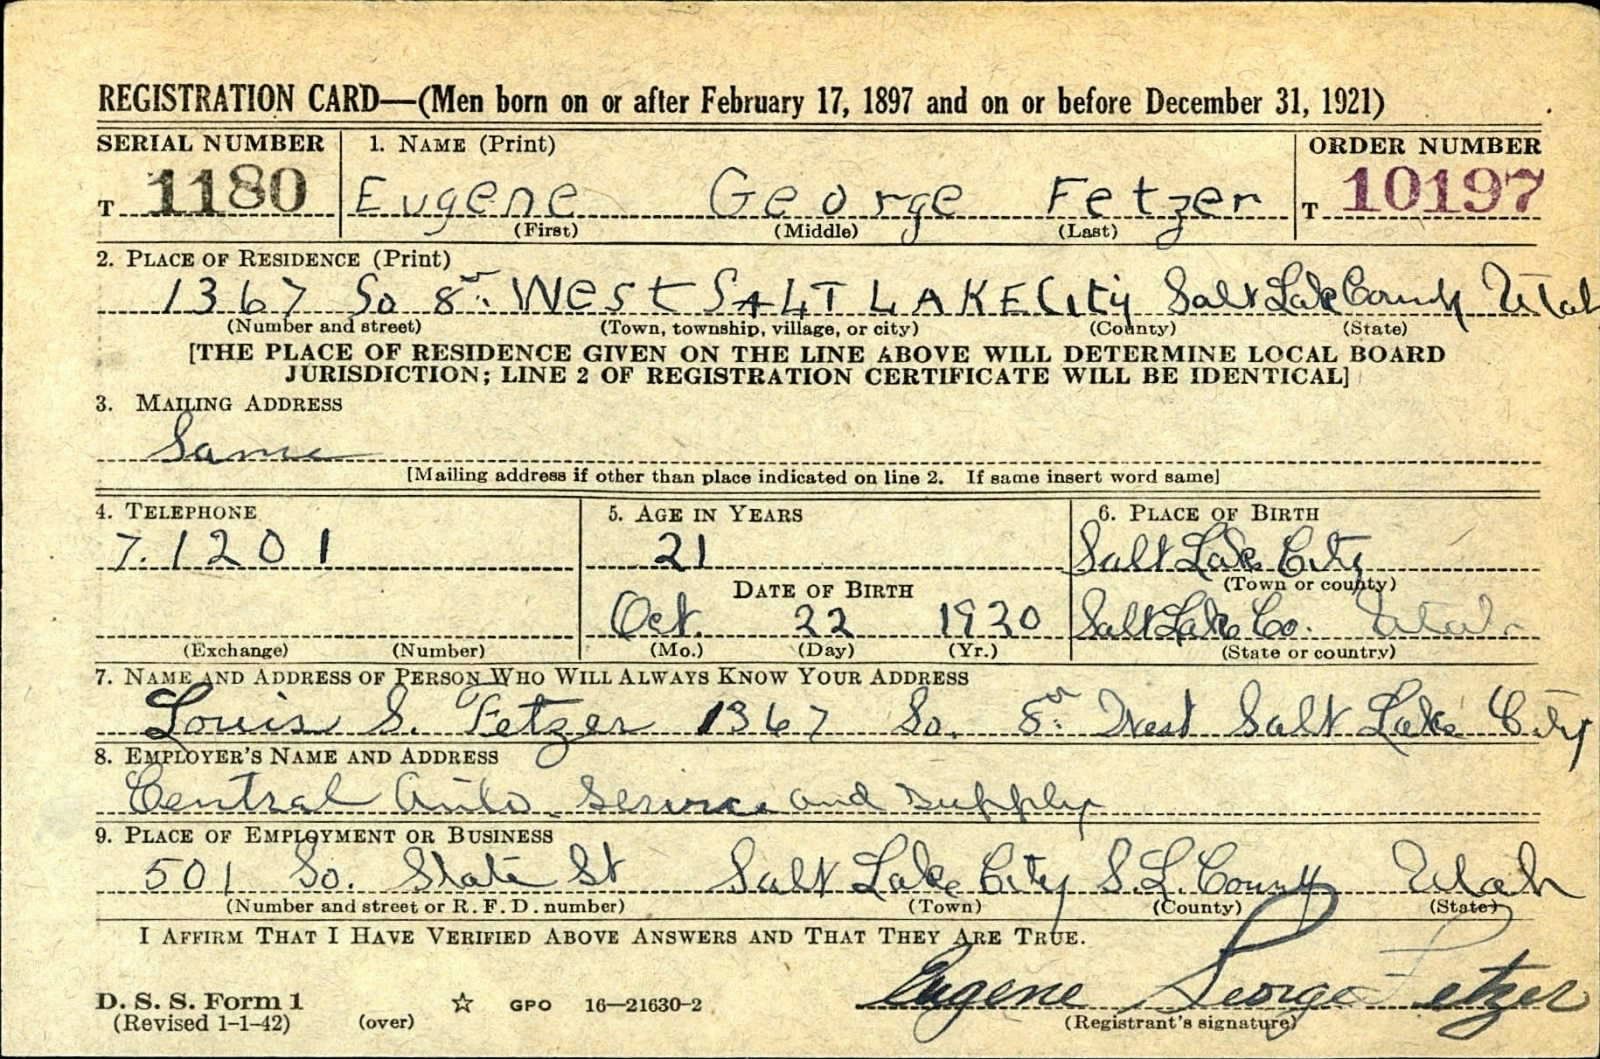 REGISTRATION CARD—(Men born on or after February 17, 1897 and on or before December 31, 1921)
SERIAL NUMBER 1. NAME (Print) ORDER NUMBER
T 1180 Eugene George Fetzer T 10197
(First) (Middle) (Last)
2. PLACE OF RESIDENCE (Print)
1367 So 8th West SALT LAKE City Salt Lake County Utah
(Number and street) (Town, township, village, or city) (County) (State)
[THE PLACE OF RESIDENCE GIVEN ON THE LINE ABOVE WILL DETERMINE LOCAL BOARD
JURISDICTION; LINE 2 OF REGISTRATION CERTIFICATE WILL BE IDENTICAL]
3. MAILING ADDRESS
Same
[Mailing address if other than place indicated on line 2. If same insert word same]
4. TELEPHONE 5. AGE IN YEARS 6. PLACE OF BIRTH
7.1201 21 Salt Lake City
DATE OF BIRTH (Town or county)
Oct. 22 1920 Salt Lake Co. Utah
(Exchange) (Number) (Mo.) (Day) (Yr.) (State or country)
7. NAME AND ADDRESS OF PERSON WHO WILL ALWAYS KNOW YOUR ADDRESS
Louis S. Fetzer 1367 So. 8th West Salt Lake City
8. EMPLOYER'S NAME AND ADDRESS
Central Auto Service and Supply
9. PLACE OF EMPLOYMENT OR BUSINESS
501 So. State St Salt Lake City S.L. County Utah
(Number and street or R. F. D. number) (Town) (County) (State)
I AFFIRM THAT I HAVE VERIFIED ABOVE ANSWERS AND THAT THEY ARE TRUE.
Eugene George Fetzer
D. S. S. Form 1 GPO 16—21630-2
(Revised 1-1-42) (over) (Registrant's signature)